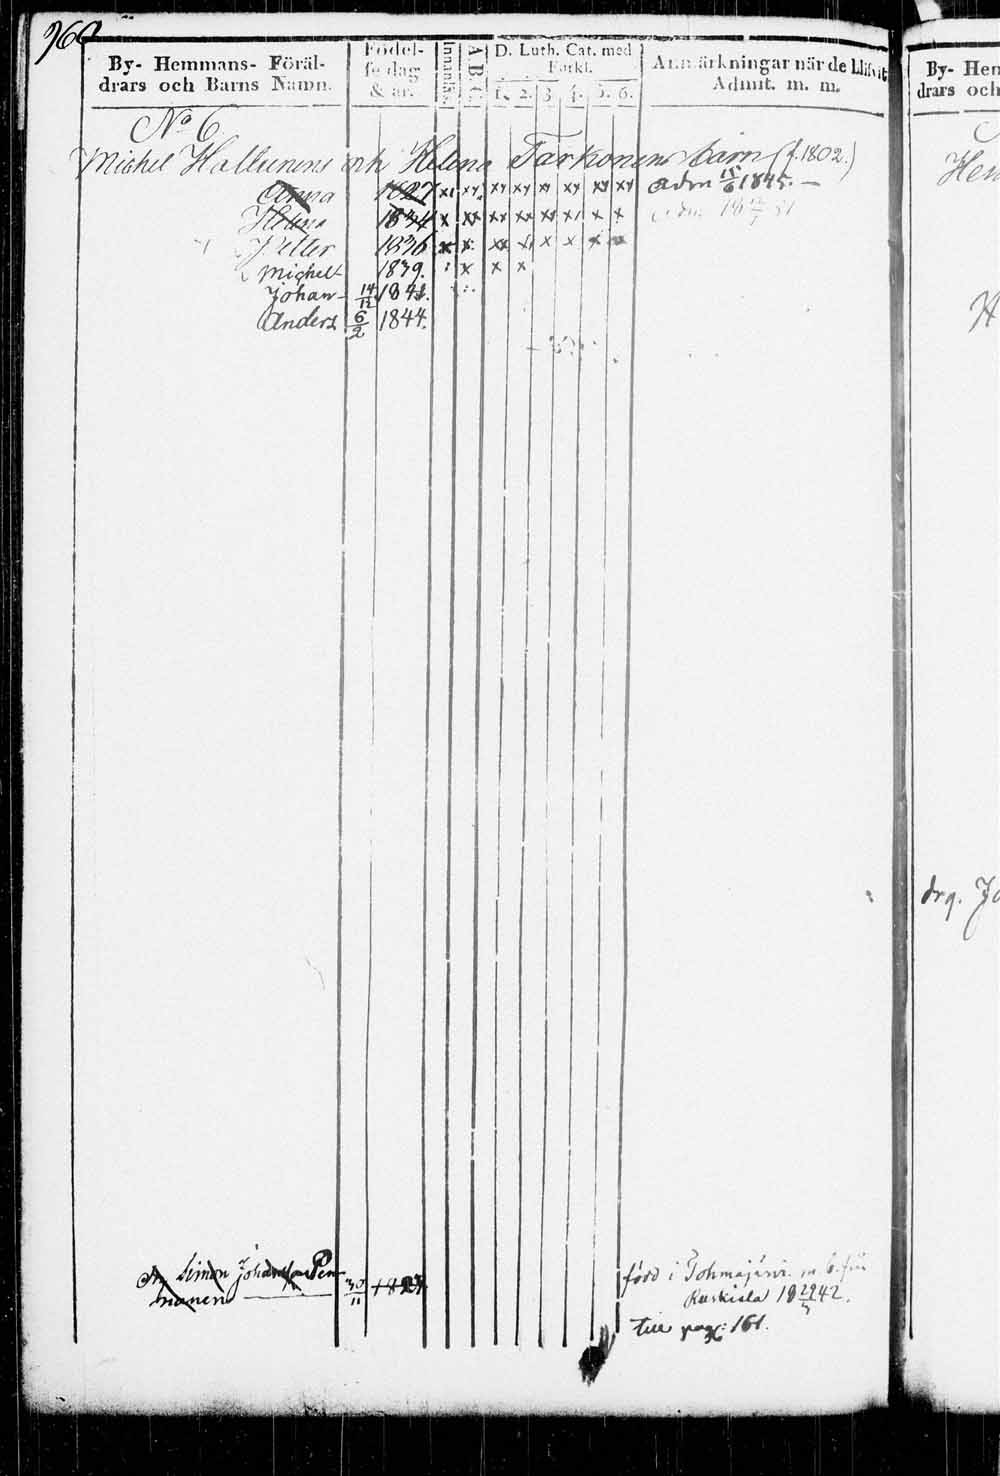 960
By- Hemmans- Föräl-
drars och Barns Namn.
Födel-
sedag
& år.
Innanläs.
A B C.
D. Luth. Cat. med
Förkl.
1. 2. 3. 4. 5. 6.
Anmärkningar när de blifvit
Admit. m. m.
No 6
Michel Hallunens och Helena Tarkonens barn (f. 1802.)
Anna 1827 Adm 15/6 1845. —
Helena 1834 Adm. 18
Petter 1836
Michel 1839.
Johan 14/12 1841.
Anders 6/2 1844.
Simon Johansson Pen-
nanen 30/11 född i Tohmajärvi
Ruskiala 18 29/3 42.
till pag: 161.
By- Hem
drars och
Hen
H
drg. Jo